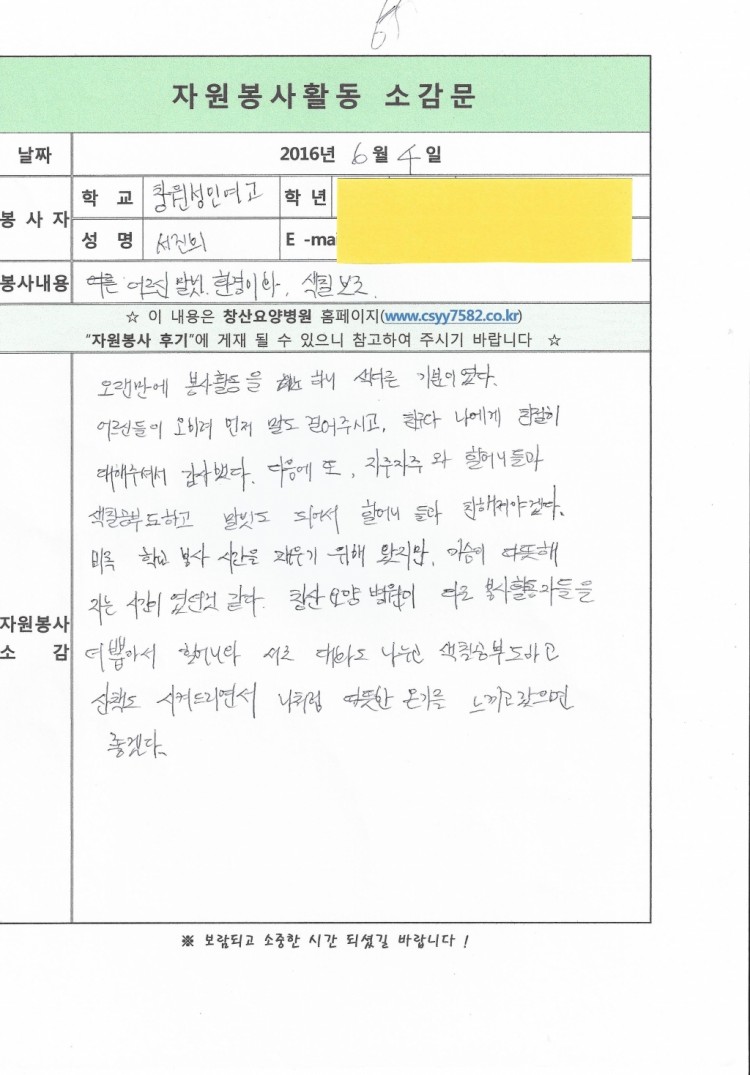 자원봉사활동 소감문
날짜 2016년 6월 4일
봉사자 학 교 창원성민여고 학 년
성 명 서진희 E -mai
봉사내용 어르신 말벗, 환경미화, 색칠 보조
☆ 이 내용은 창산요양병원 홈페이지(www.csyy7582.co.kr)
"자원봉사 후기"에 게재 될 수 있으니 참고하여 주시기 바랍니다 ☆
자원봉사
소 감
오랜만에 봉사활동을 하니 색다른 기분이였다.
어르신들이 오히려 먼저 말도 걸어주시고, 나에게 친절히
대해주셔서 감사했다. 다음에 또, 자주자주 와 할머니들과
색칠공부도하고 말벗도 되어서 할머니 들과 친해져야겠다.
비록 학교 봉사 시간을 채우기 위해 왔지만, 가슴이 따뜻해
지는 시간이 였던것 같다. 창산 요양 병원이 다른 봉사활동자들을
더 뽑아서 할머니와 서로 대화도 나누고 색칠공부도하고
산책도 시켜드리면서 나처럼 따뜻한 온기를 느끼고갔으면
좋겠다.
※ 보람되고 소중한 시간 되셨길 바랍니다 !